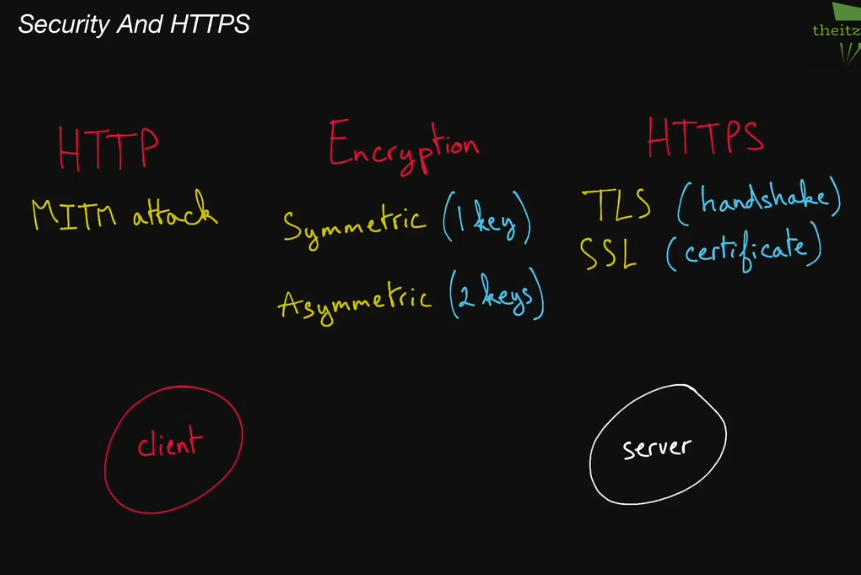 Security And HTTPS
theitz
HTTP
MITM attack
Encryption
Symmetric (1 key)
Asymmetric (2 keys)
HTTPS
TLS (handshake)
SSL (certificate)
client
server